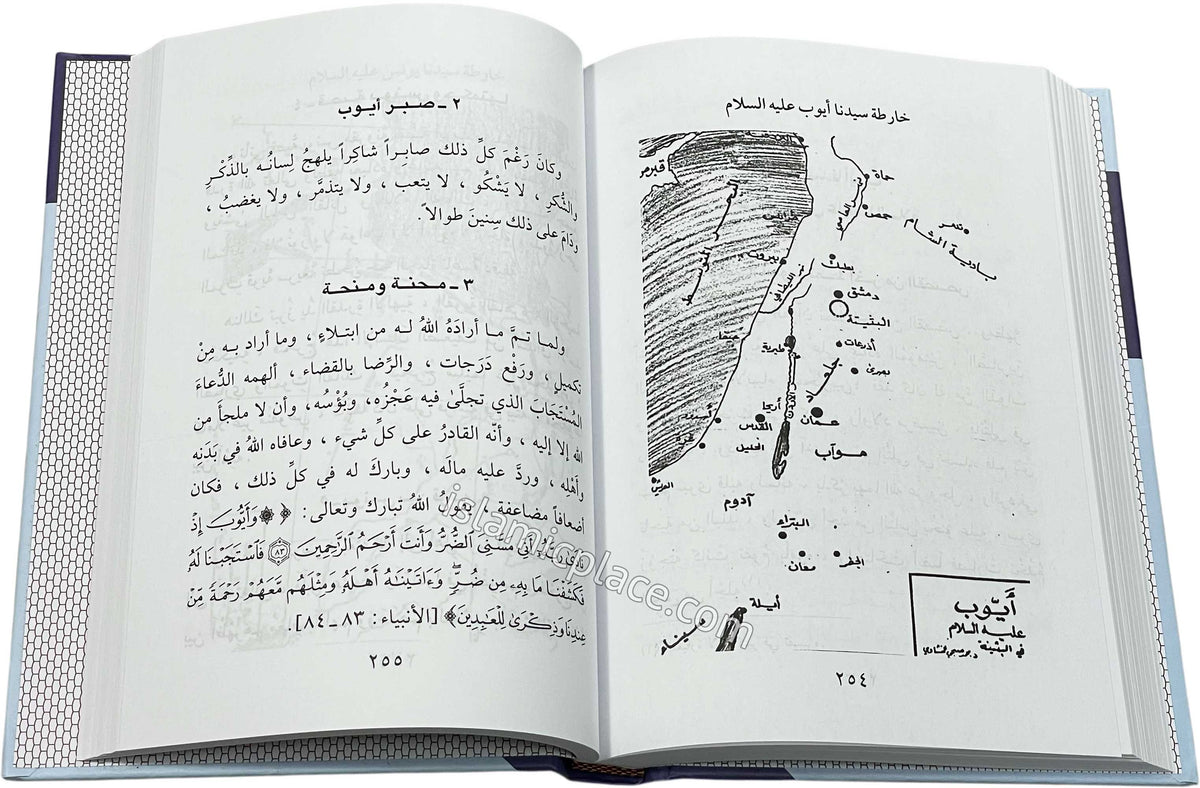 خارطة سيدنا أيوب عليه السلام
قبرص
حماة
نهر العاصي
حمص
تدمر
بادية الشام
طرابلس
البحر المتوسط
بيروت
نهر الليطاني
بعلبك
دمشق
البثنية
أذرعات
حيفا
طبرية
بصرى
جلعاد
الأردن
أريحا
عمان
القدس
الخليل
غزة
مؤاب
العريش
آدوم
البتراء
معان
الجفر
أيلة
سيناء
أيّوب
عليه السلام
في البثنية
٢٥٤
٢ - صبر أيوب
وكانَ رَغْمَ كلِّ ذلك صابِراً شاكِراً يلهجُ لِسانُه بالذِّكْرِ
والشُّكرِ ، لا يَشْكُو ، لا يتعب ، ولا يتذمَّر ، ولا يغضبُ ،
ودَامَ على ذلك سِنينَ طوالاً .
٣ - محنة ومنحة
ولما تمَّ ما أرادَهُ اللهُ له من ابتلاءٍ ، وما أراد به مِنْ
تكميلٍ ، ورَفْع دَرَجات ، والرِّضا بالقضاء ، ألهمه الدُّعاءَ
المُسْتَجَابَ الذي تجلَّىٰ فيه عَجْزُه، وبُؤْسُه، وأن لا ملجأ من
الله إلا إليه ، وأنّه القادرُ على كلِّ شيء ، وعافاه اللهُ في بَدَنِهِ
وأهْلِه ، وردَّ عليه مالَه ، وباركَ له في كلِّ ذلك ، فكان
أضعافاً مضاعفة ، يقولُ اللهُ تبارك وتعالى: ﴿ ۞ وَأَيُّوبَ إِذْ
نَادَىٰ رَبَّهُۥٓ أَنِّي مَسَّنِيَ ٱلضُّرُّ وَأَنتَ أَرْحَمُ ٱلرَّٰحِمِينَ ۝٨٣ فَٱسْتَجَبْنَا لَهُۥ
فَكَشَفْنَا مَا بِهِۦ مِن ضُرٍّ ۖ وَءَاتَيْنَٰهُ أَهْلَهُۥ وَمِثْلَهُم مَّعَهُمْ رَحْمَةً مِّنْ
عِندِنَا وَذِكْرَىٰ لِلْعَٰبِدِينَ﴾ [الأنبياء: ٨٣ - ٨٤].
٢٥٥
islamicplace.com